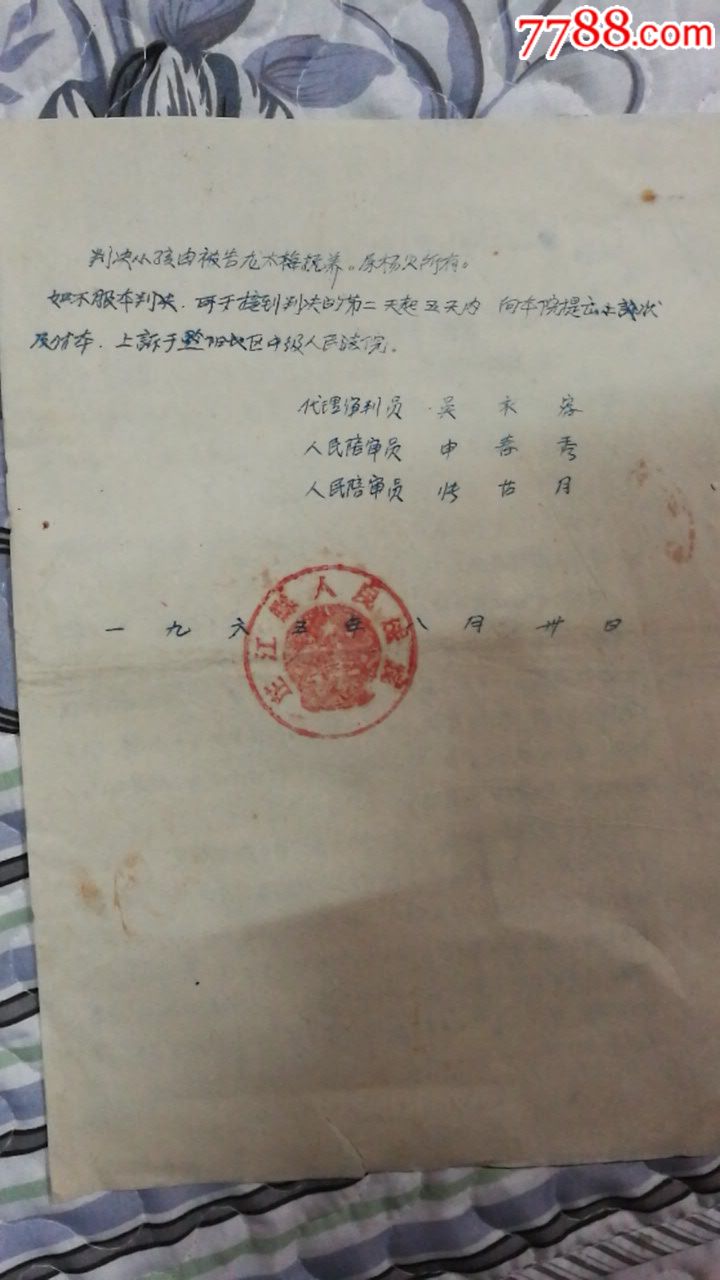 7788.com
判决小孩由被告龙木梅抚养。原杨父所有。
如不服本判决,可于接到判决的第二天起五天内 向本院提出上訴状
及付本,上訴于黔阳地区中级人民法院。
代理审判员 吴
人民陪审员 申 春 秀
人民陪审员 张 古 月
芷江縣人民法院
一九六五年八月卅日